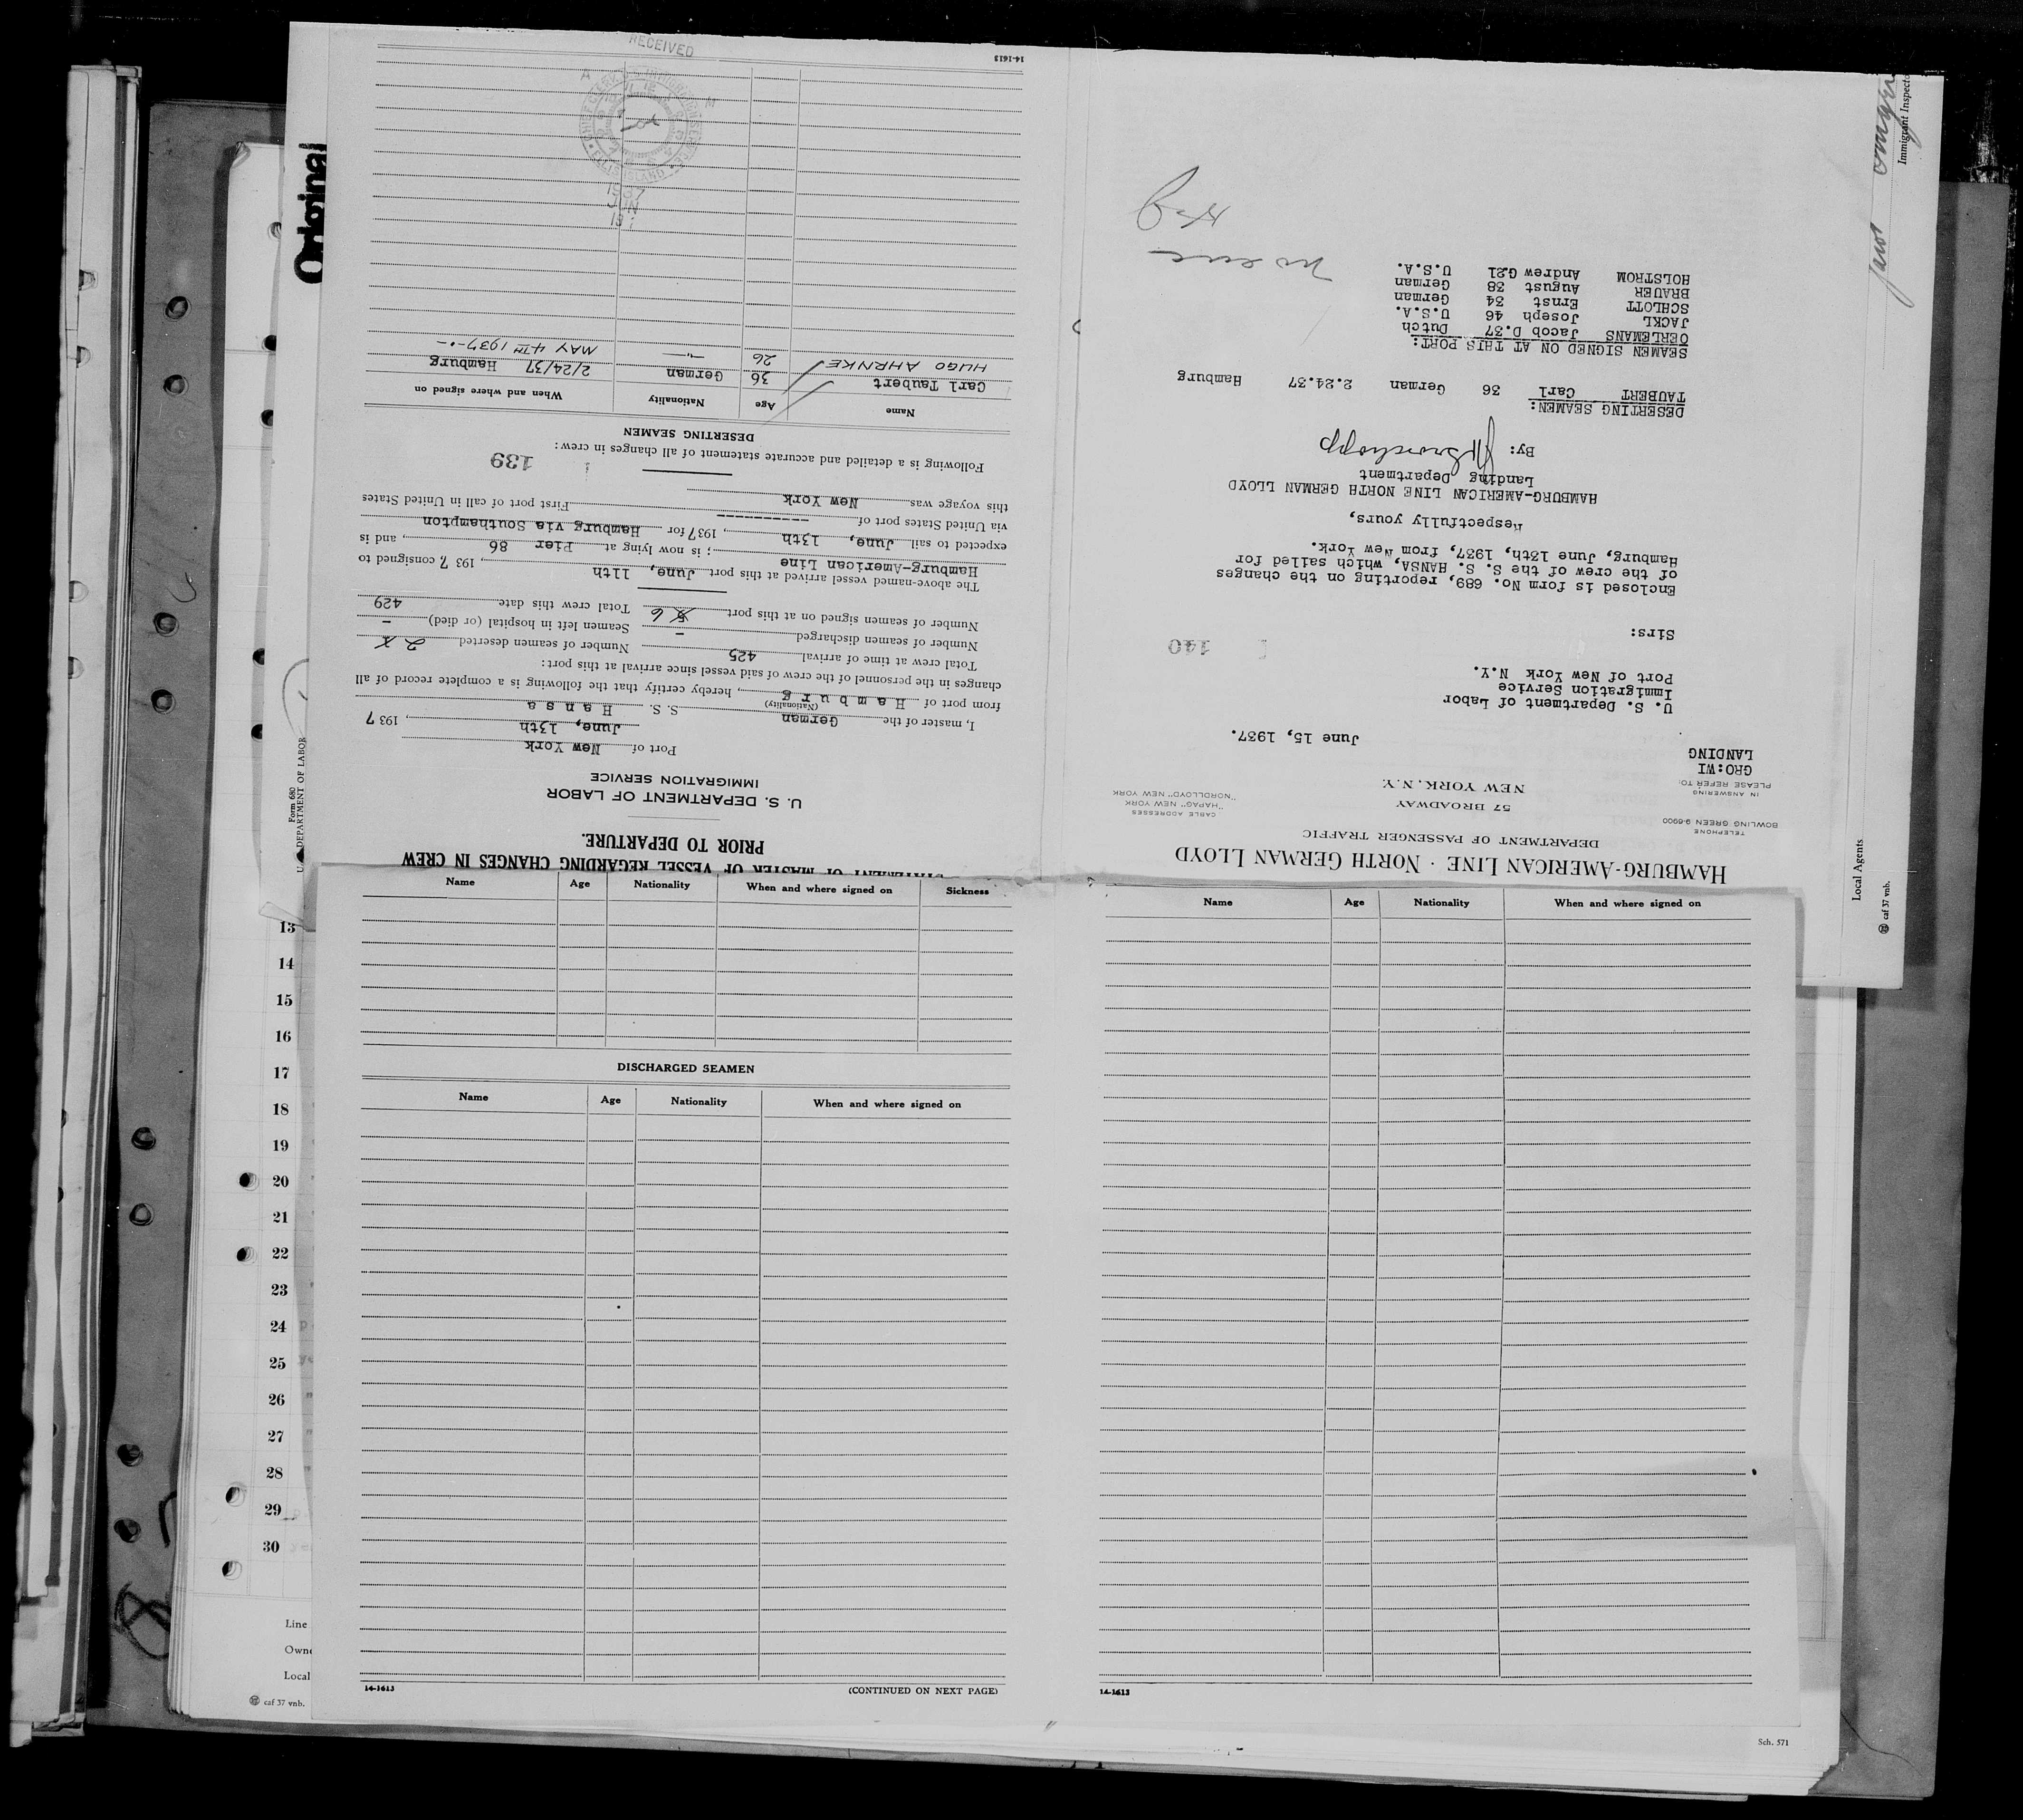 STATEMENT OF MASTER OF VESSEL REGARDING CHANGES IN CREW
PRIOR TO DEPARTURE.
U. S. DEPARTMENT OF LABOR
IMMIGRATION SERVICE
Port of New York
June, 13th, 1937
I, master of the German S. S. Hansa
(Nationality)
from port of Hamburg, hereby certify that the following is a complete record of all
changes in the personnel of the crew of said vessel since arrival at this port:
Total crew at time of arrival 425 Number of seamen deserted 2
Number of seamen discharged - Seamen left in hospital (or died) -
Number of seamen signed on at this port 6 Total crew this date 429
The above-named vessel arrived at this port June, 11th, 1937, consigned to
Hamburg-American Line; is now lying at Pier 86, and is
expected to sail June, 13th, 1937 for Hamburg via Southampton
via United States port of ----------- First port of call in United States
this voyage was New York
Following is a detailed and accurate statement of all changes in crew:
139
DESERTING SEAMEN
Name Age Nationality When and where signed on
Carl Taubert 36 German 2/24/37 Hamburg
HUGO AHRNKE 26 -"- MAY 4TH 1937 -"-
RECEIVED
ELLIS ISLAND
1937
JUN
14-1613
HAMBURG-AMERICAN LINE · NORTH GERMAN LLOYD
DEPARTMENT OF PASSENGER TRAFFIC
57 BROADWAY
NEW YORK, N.Y.
TELEPHONE
BOWLING GREEN 9-6900
IN ANSWERING
PLEASE REFER TO:
GRO:WI
LANDING
CABLE ADDRESSES
"HAPAG" NEW YORK
"NORDLLOYD" NEW YORK
June 15, 1937.
U. S. Department of Labor
Immigration Service
Port of New York N.Y.
140
Sirs:
Enclosed is form No. 689, reporting on the changes
of the crew of the S. S. HANSA, which sailed for
Hamburg, June 13th, 1937, from New York.
Respectfully yours,
HAMBURG-AMERICAN LINE NORTH GERMAN LLOYD
Landing Department
By:
DESERTING SEAMEN:
TAUBERT Carl 36 German 2.24.37 Hamburg
SEAMEN SIGNED ON AT THIS PORT:
OERLEMANS Jacob D.37 Dutch
JACKL Joseph 46 U.S.A.
SCHLOTT Ernst 34 German
BRAUER August 38 German
HOLSTROM Andrew G.21 U.S.A.
Name Age Nationality When and where signed on Sickness
DISCHARGED SEAMEN
Name Age Nationality When and where signed on
14-1613
(CONTINUED ON NEXT PAGE)
Name Age Nationality When and where signed on
14-1613
Original
Form 680
DEPARTMENT OF LABOR
13
14
15
16
17
18
19
20
21
22
23
24
25
26
27
28
29
30
Line
Local
caf 37 vnb.
Immigrant Inspecto
Local Agents
caf 37 vnb.
Sch. 571